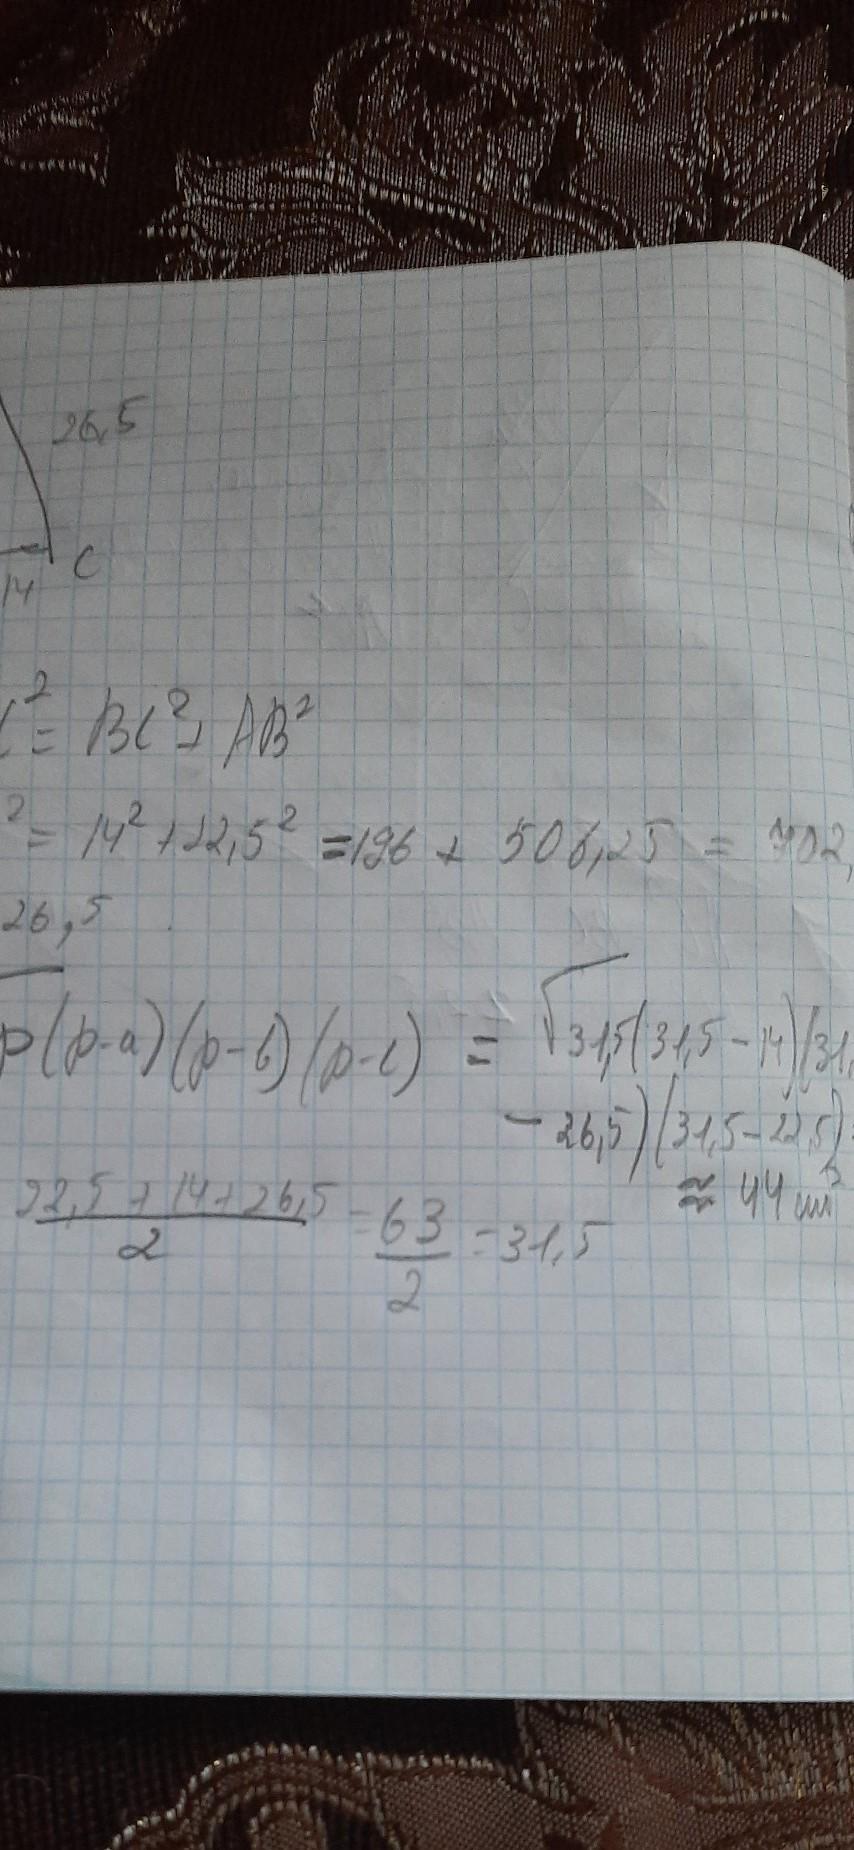 26,5
C
14
² = BC² + AB²
² = 14² + 22,5² = 196 + 506,25 = 702,
26,5
p(p-a)(p-b)(p-c) = √31,5(31,5-14)(31,
- 26,5)(31,5-22,5)
≈ 44 см²
22,5+14+26,5/2 = 63/2 = 31,5